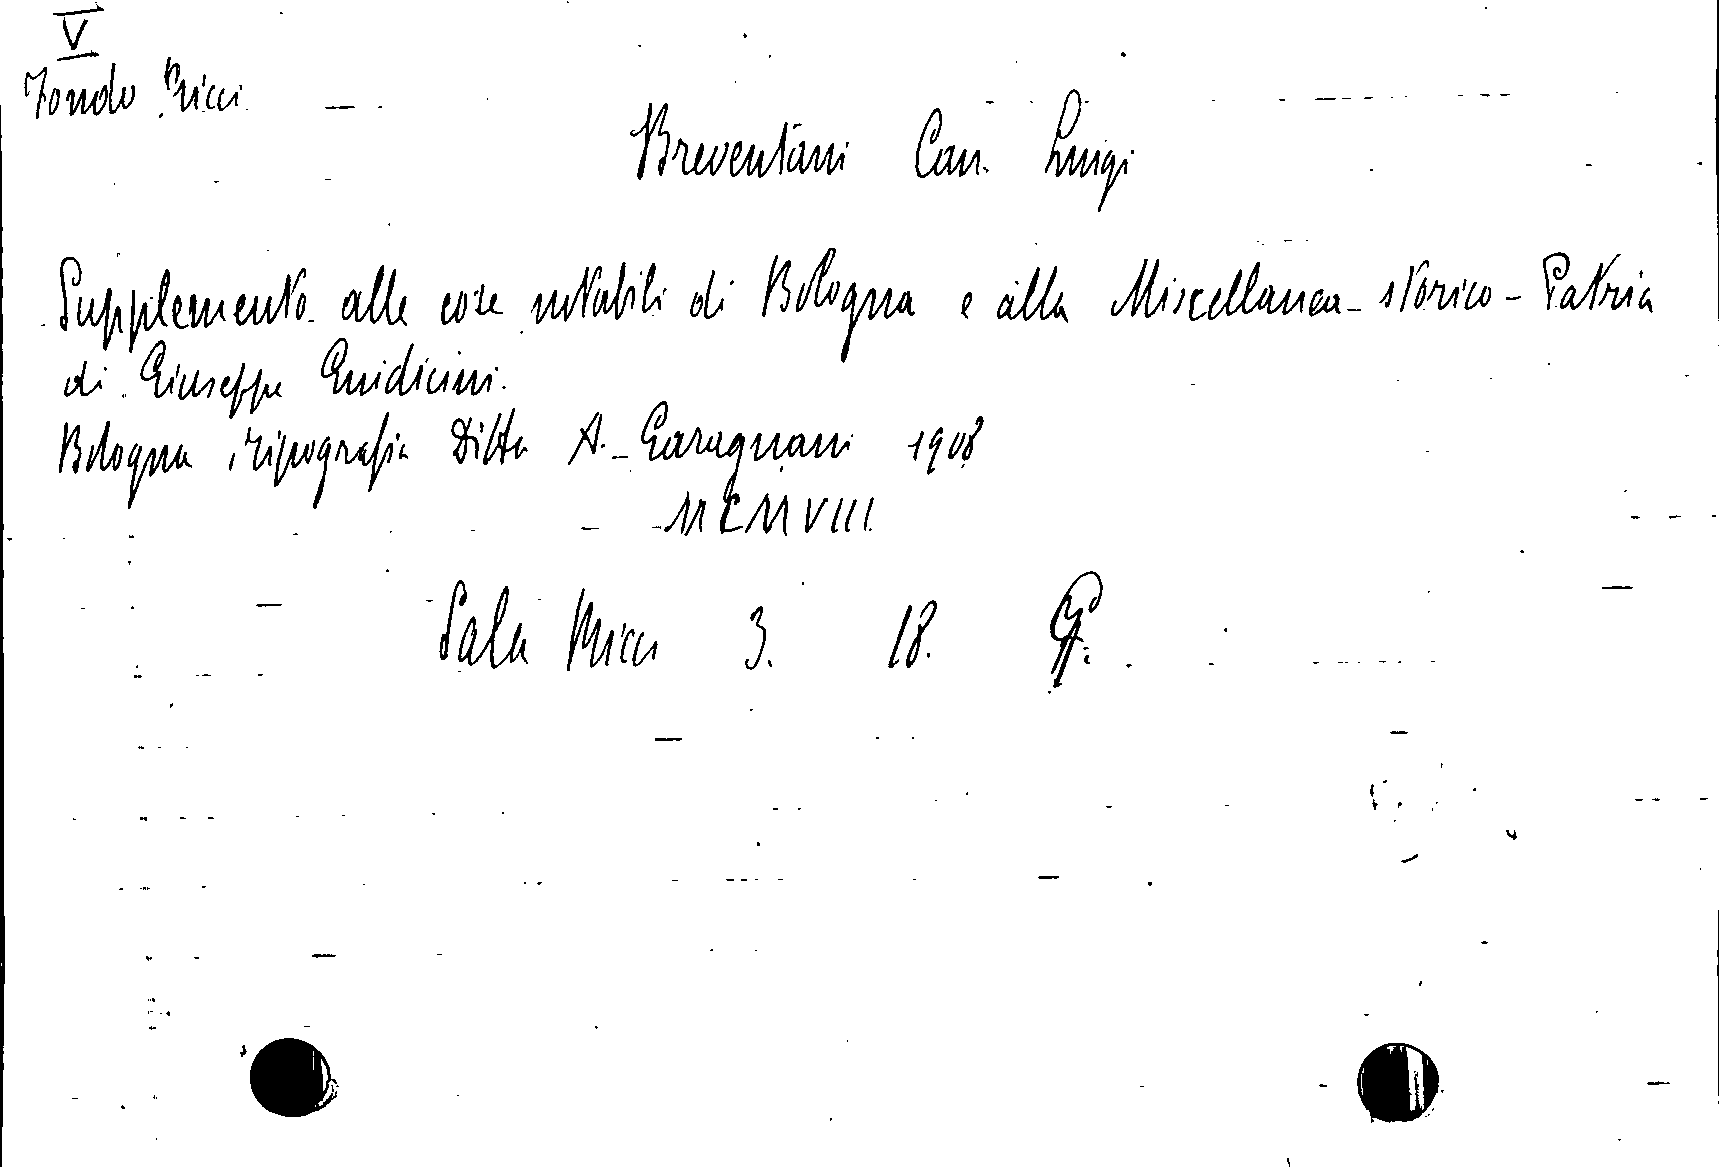 V
Fondo Ricci
Breventani Can. Luigi
Supplemento alle cose notabili di Bologna e alla Miscellanea-storico-Patria
di Giuseppe Guidicini.
Bologna, Tipografia Ditta A. Garagnani 1908
MCMVIII
Sala Ricci 3. 18.